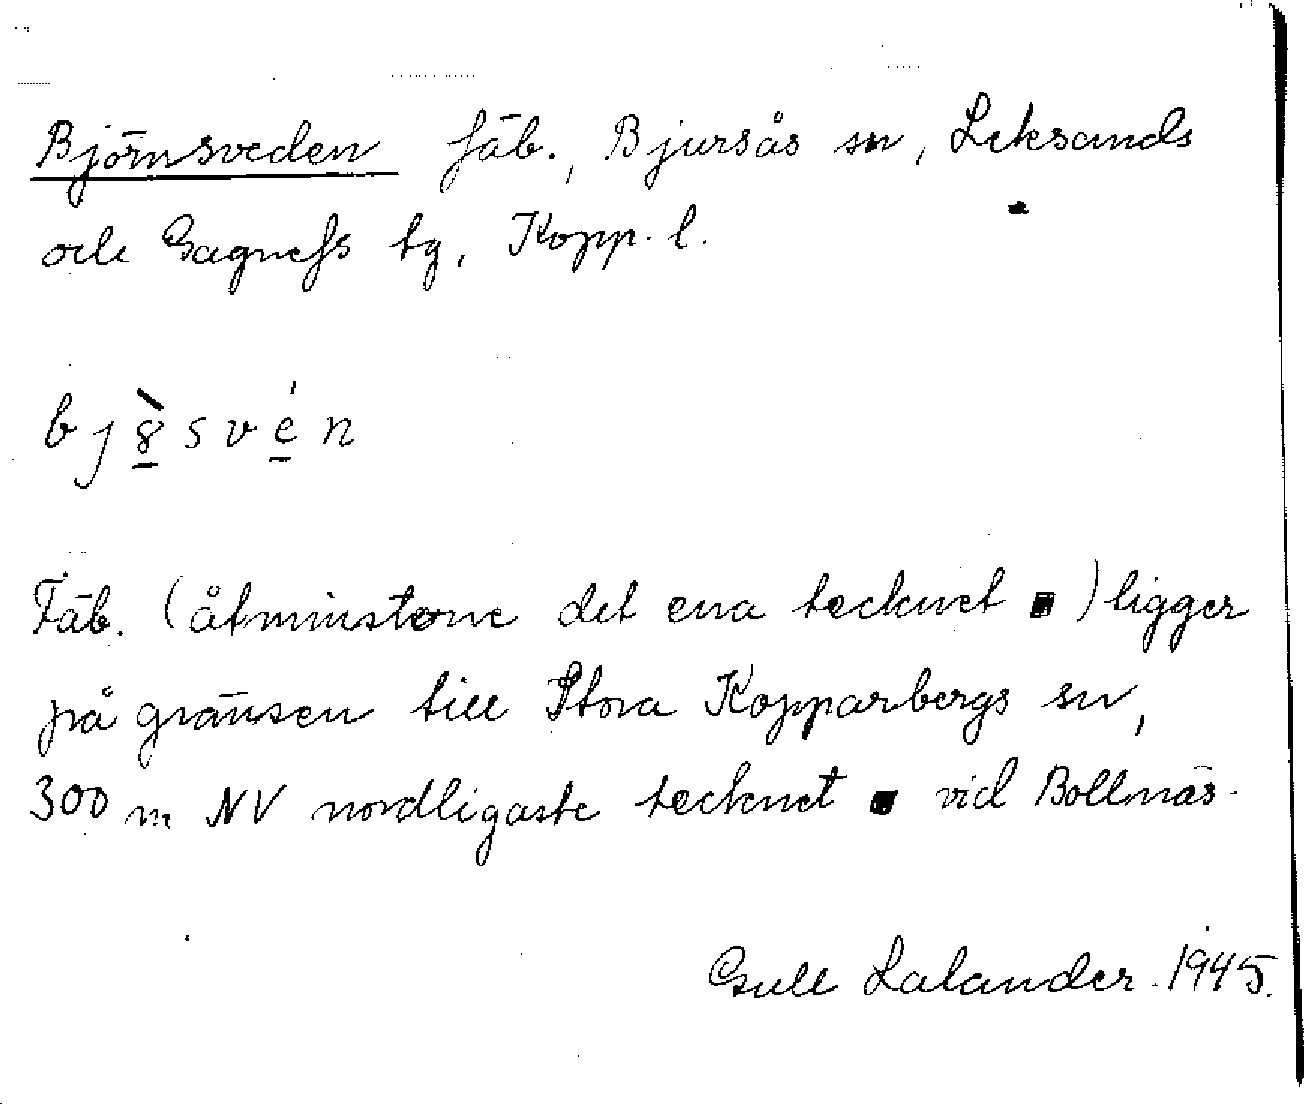 Björnsveden fäb., Bjursås sn, Leksands
och Gagnefs tg, Kopp. l.
bj8̠̀své̠n
Fäb. (åtminstone det ena tecknet ■) ligger
på gränsen till Stora Kopparbergs sn,
300 m NV nordligaste tecknet ■ vid Bollnäs.
Gull Lalander 1945.